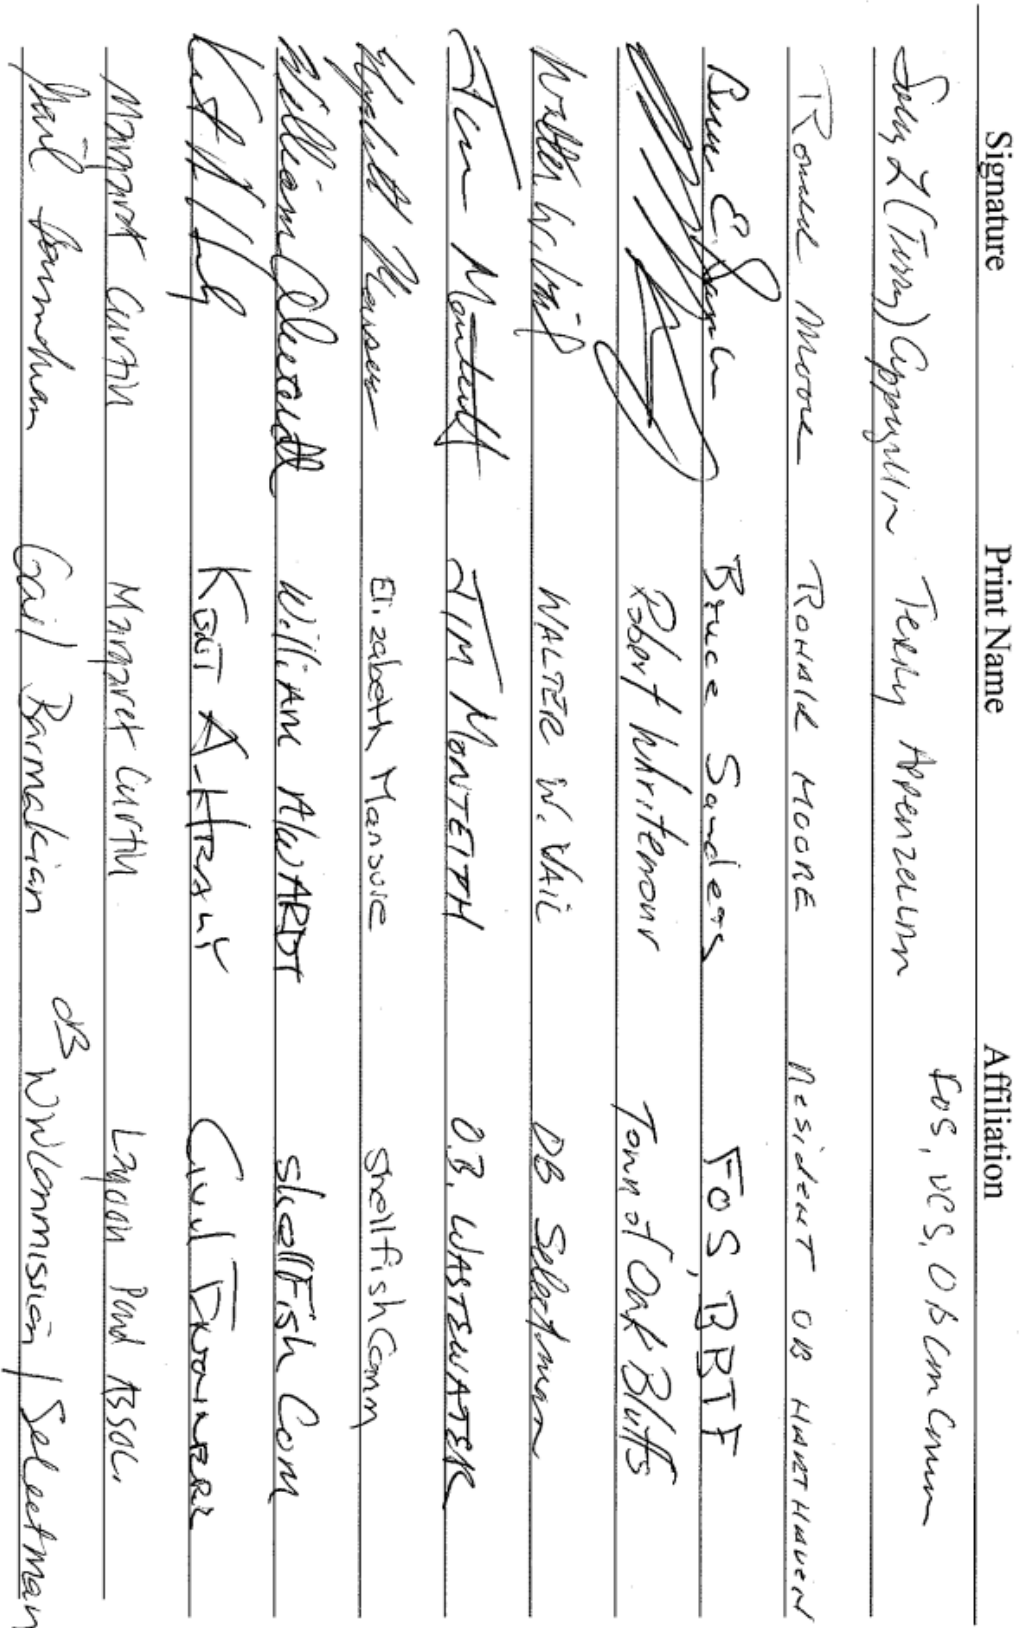 Signature Print Name Affiliation
(Terry) Appenzeller Terry Appenzeller FOS, VCS, OB Com Comm
Ronald Moore RONALD MOORE Resident OB HARTHAVEN
Bruce E Bruce Sanders FOS, BBTF
Robert Whritenour Town of Oak Bluffs
Walter W. Vail WALTER W. VAIL OB Selectman
Jim Monteith JIM MONTEITH O.B. WASTEWATER
Elizabeth Shellfish Comm
William Alwardt William AlWARDT ShellFish Com
KENT A. HEALY Civil ENGINEER
Margaret Curtin Margaret Curtin Lagoon Pond Assoc.
Gail Barmakian Gail Barmakian OB WW Commission / Selectman